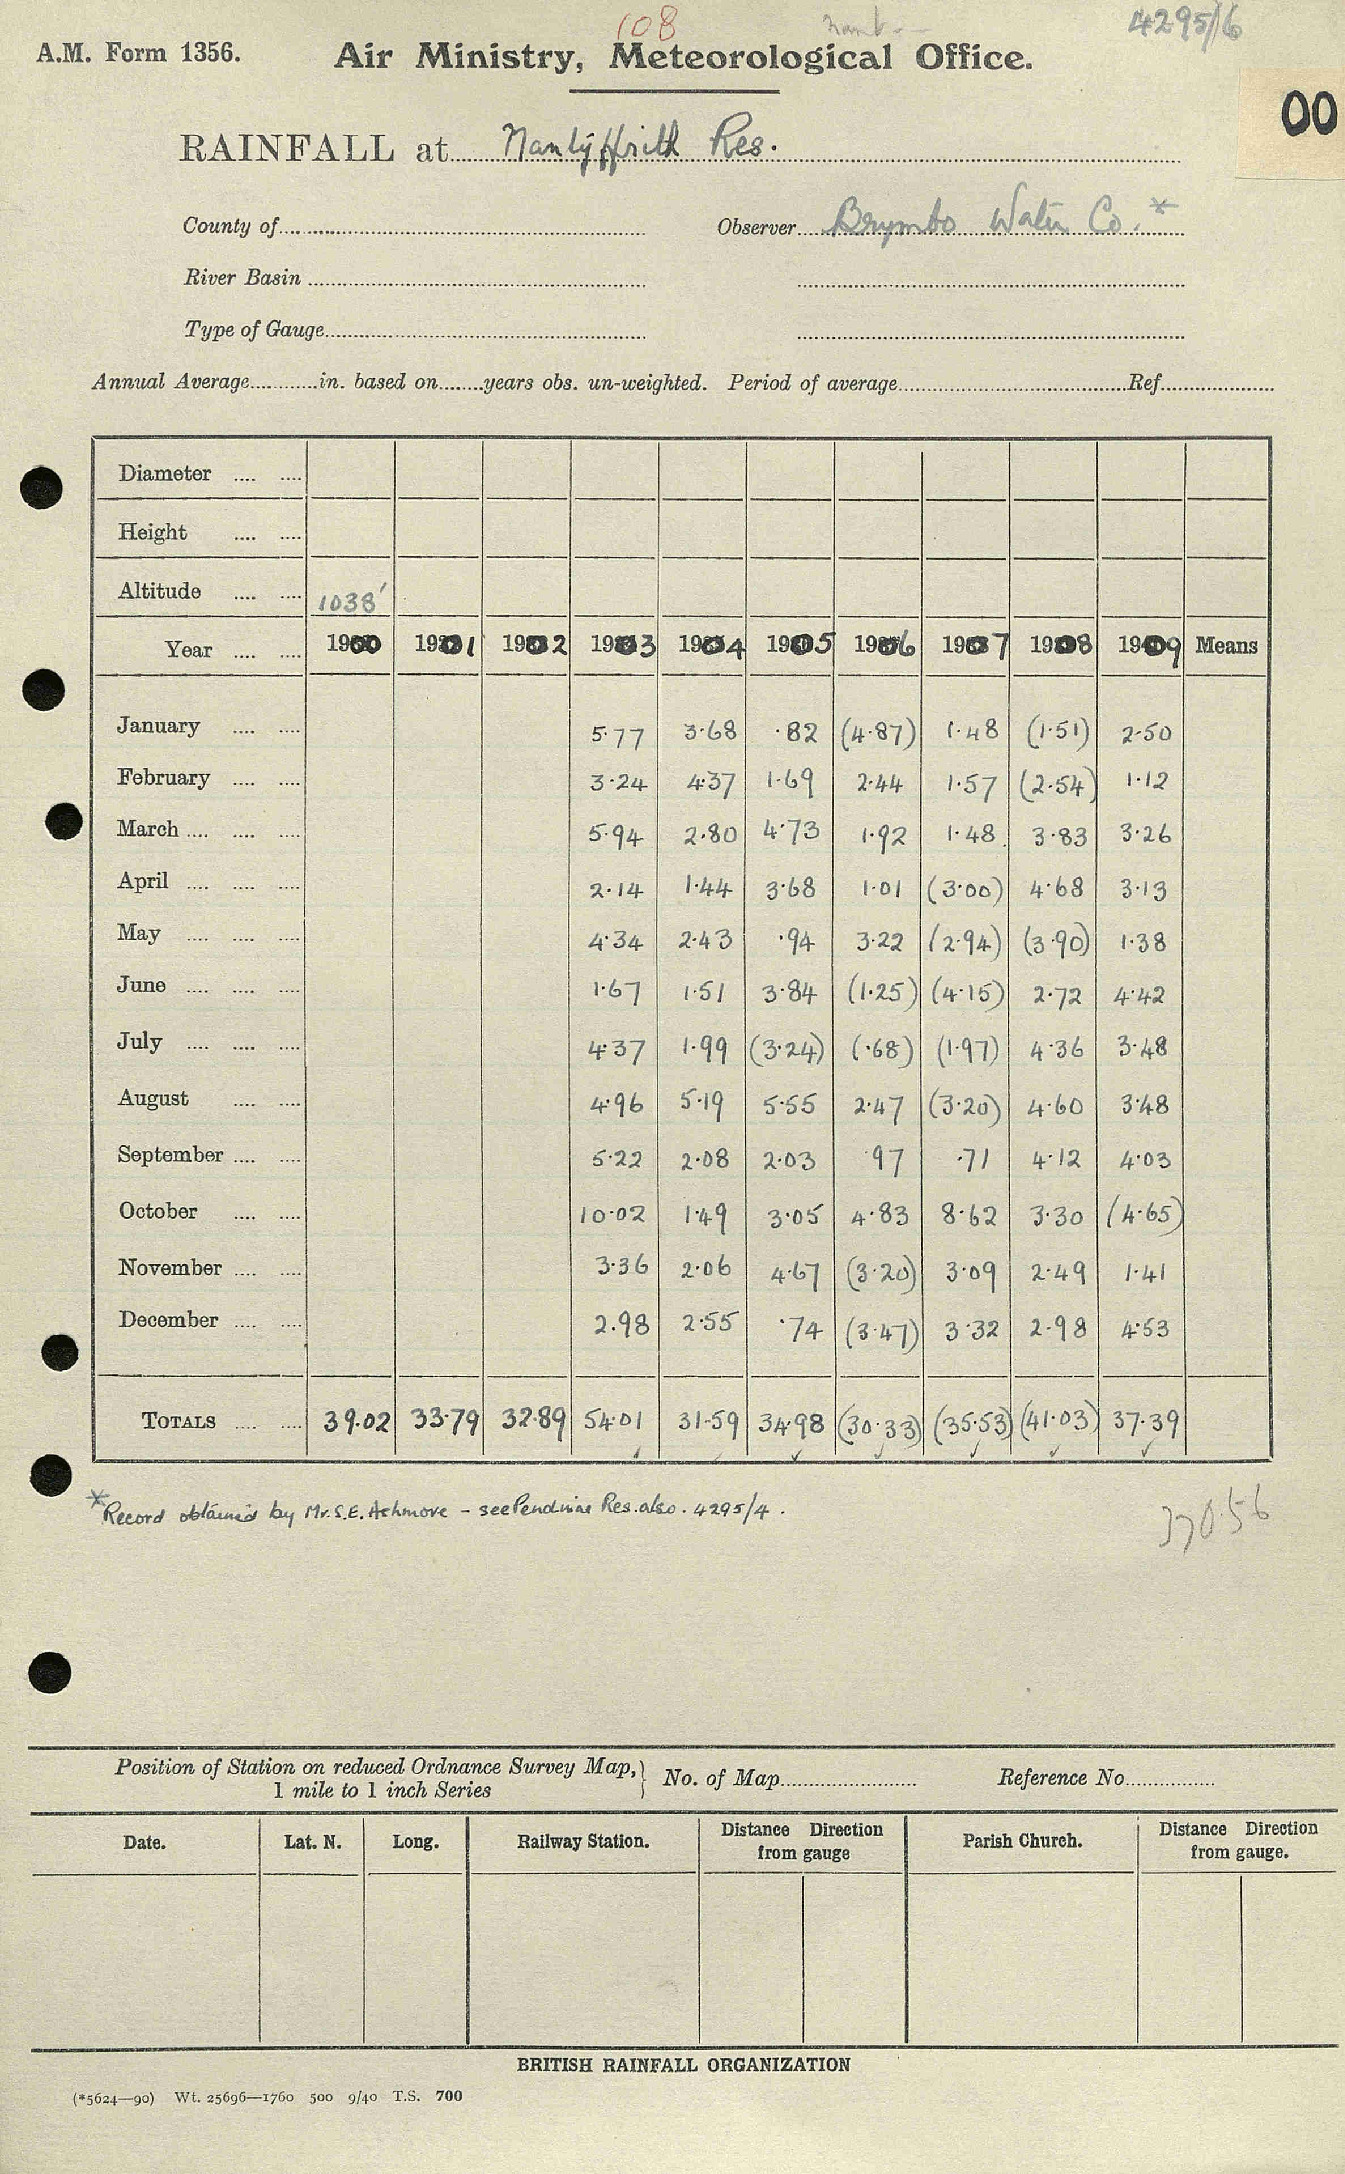 108
4295/6
A.M. Form 1356.
Air Ministry, Meteorological Office.
00
RAINFALL at Nantyffrith Res.
County of
Observer Brymbo Water Co. *
River Basin
Type of Gauge
Annual Average in. based on years obs. un-weighted. Period of average Ref.
Diameter
Height
Altitude 1038'
Year 1900 1901 1902 1903 1904 1905 1906 1907 1908 1909 Means
January 5.77 3.68 .82 (4.87) 1.48 (1.51) 2.50
February 3.24 4.37 1.69 2.44 1.57 (2.54) 1.12
March 5.94 2.80 4.73 1.92 1.48 3.83 3.26
April 2.14 1.44 3.68 1.01 (3.00) 4.68 3.13
May 4.34 2.43 .94 3.22 (2.94) (3.90) 1.38
June 1.67 1.51 3.84 (1.25) (4.15) 2.72 4.42
July 4.37 1.99 (3.24) (.68) (1.97) 4.36 3.48
August 4.96 5.19 5.55 2.47 (3.20) 4.60 3.48
September 5.22 2.08 2.03 .97 .71 4.12 4.03
October 10.02 1.49 3.05 4.83 8.62 3.30 (4.65)
November 3.36 2.06 4.67 (3.20) 3.09 2.49 1.41
December 2.98 2.55 .74 (3.47) 3.32 2.98 4.53
TOTALS 39.02 33.79 32.89 54.01 31.59 34.98 (30.33) (35.53) (41.03) 37.39
*Record obtained by Mr. S.E. Ashmore - see Pendwine Res. also. 4295/4.
370.56
Position of Station on reduced Ordnance Survey Map,
1 mile to 1 inch Series
No. of Map
Reference No.
Date. Lat. N. Long. Railway Station. Distance Direction from gauge Parish Church. Distance Direction from gauge.
BRITISH RAINFALL ORGANIZATION
(*5624—90) Wt. 25696—1760 500 9/40 T.S. 700